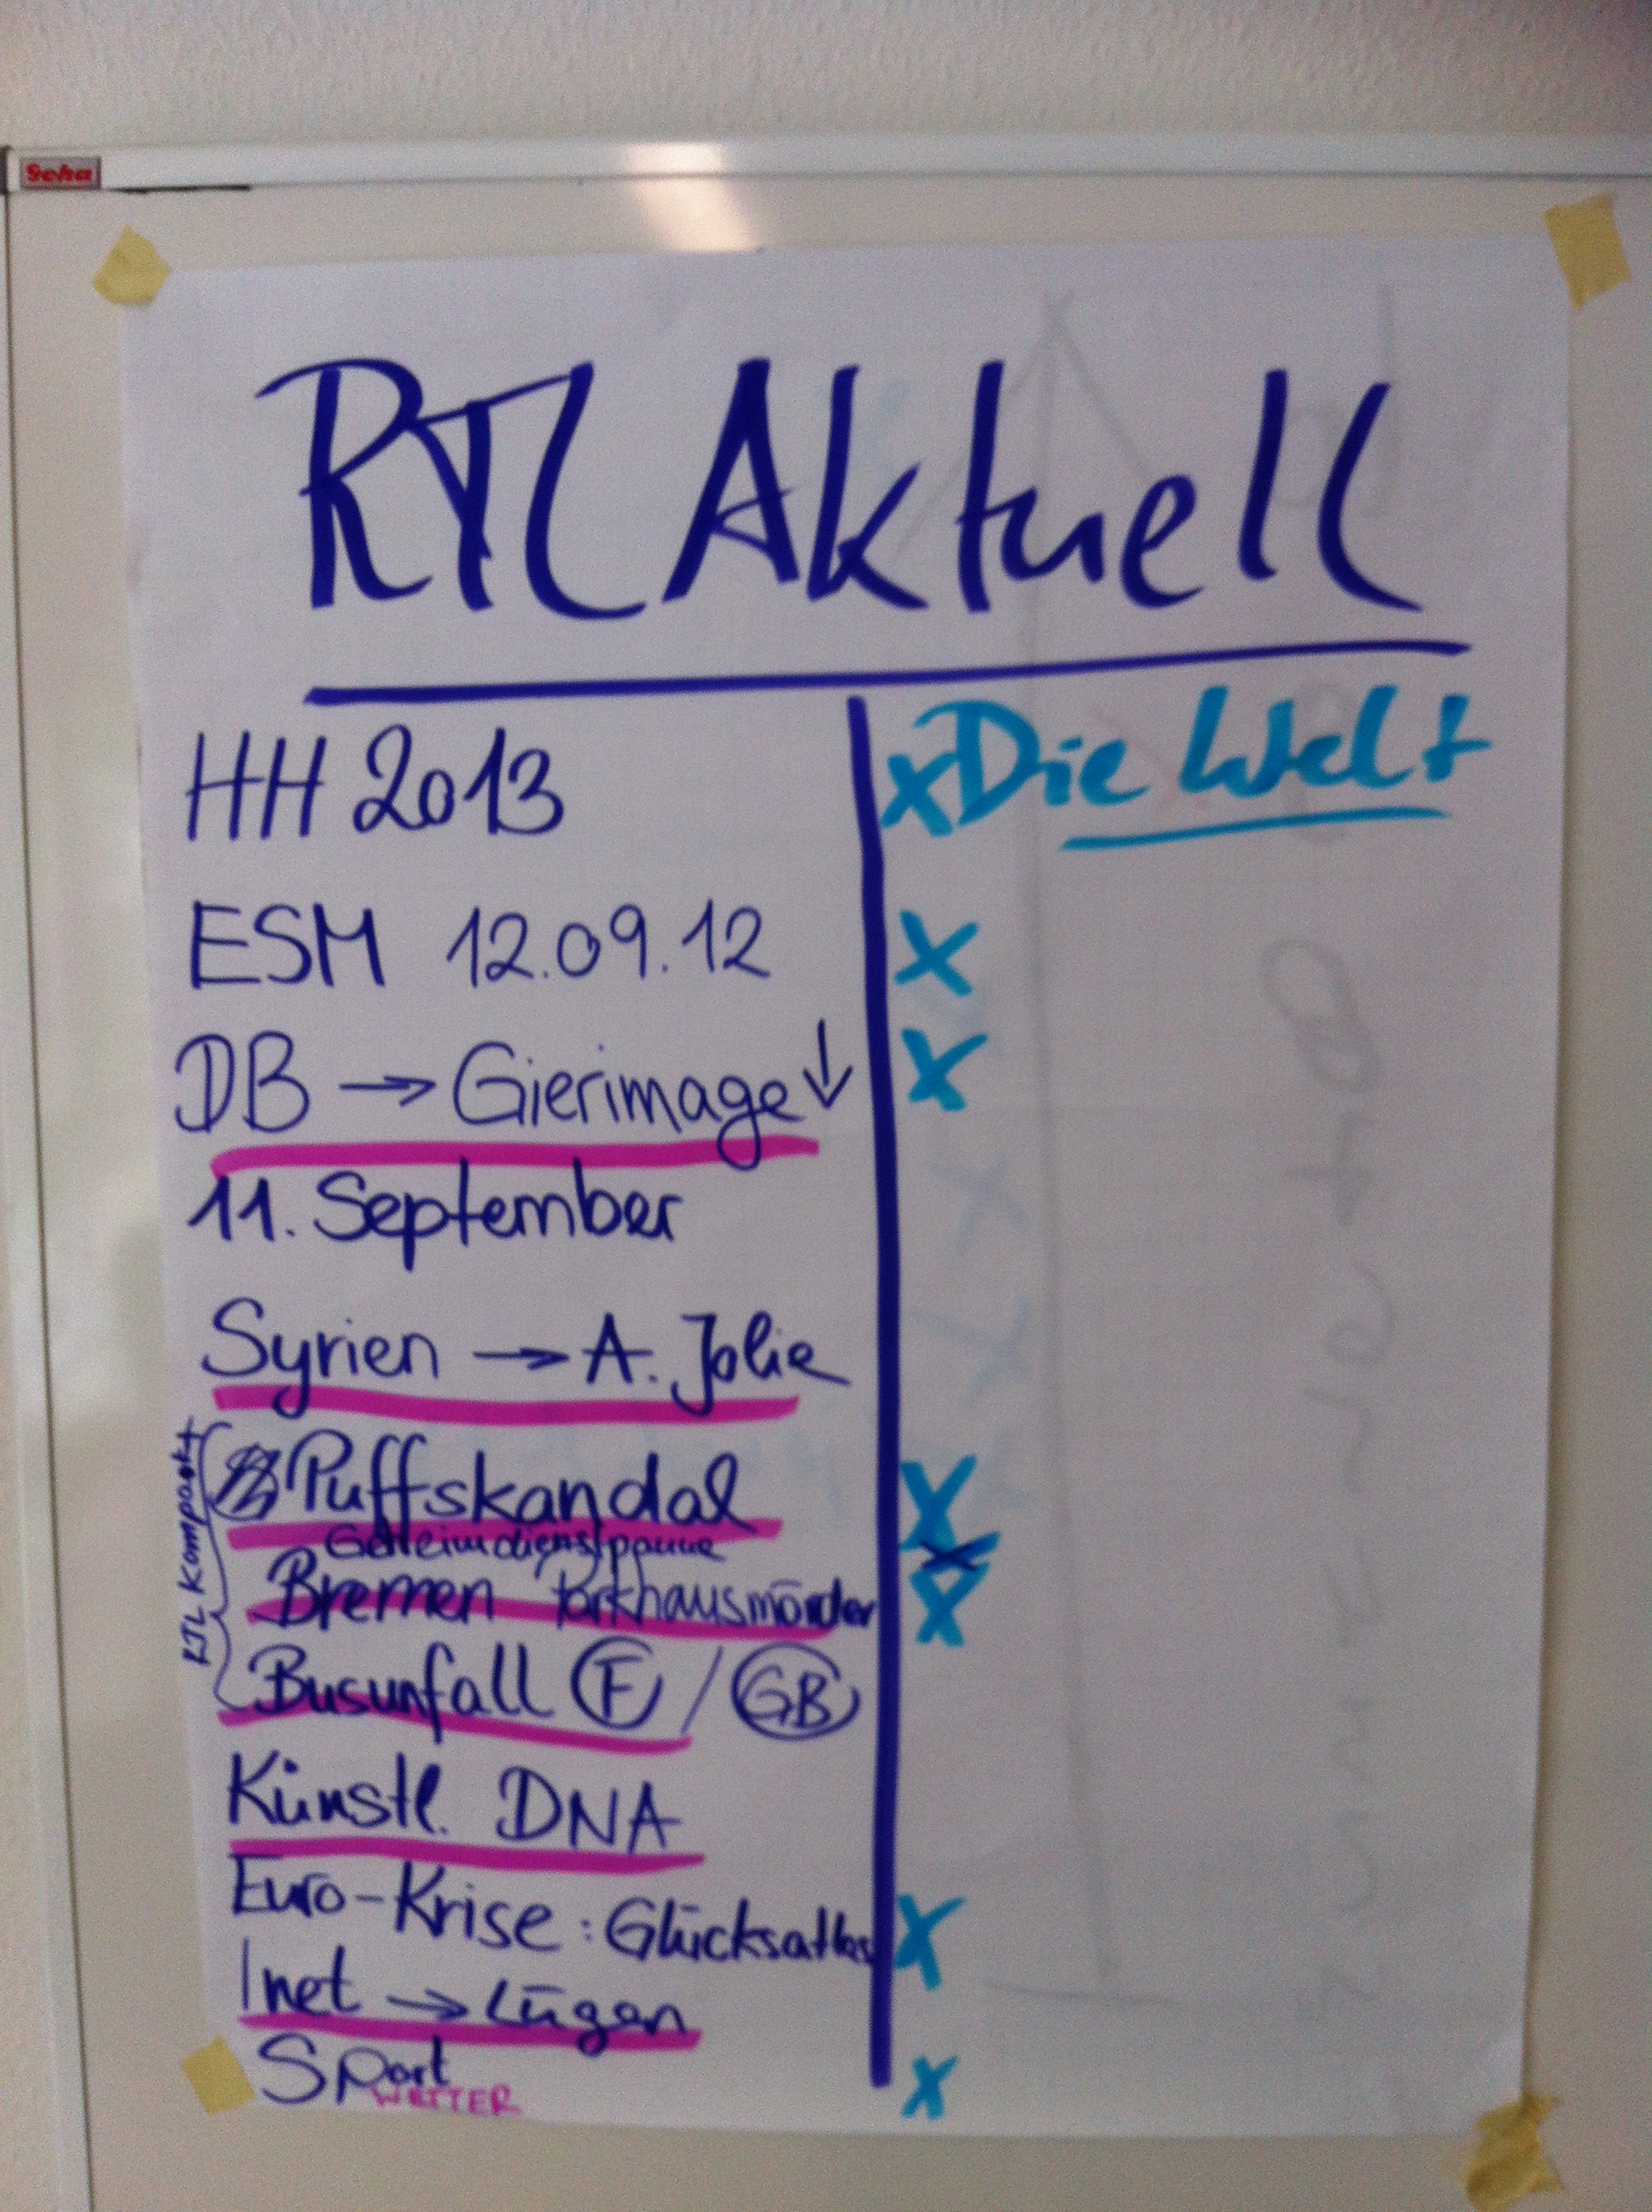 Geha
RTL Aktuell
HH 2013 x Die Welt
ESM 12.09.12 x
DB → Gierimage ↓ x
11. September
Syrien → A. Jolie
RTL Kompakt
Puffskandal x
Geheimdienstpanne x
Bremen Parkhausmörder x
Busunfall F / GB
Künstl. DNA
Euro-Krise: Glücksatlas x
Inet → Lügen
Sport x
WETTER